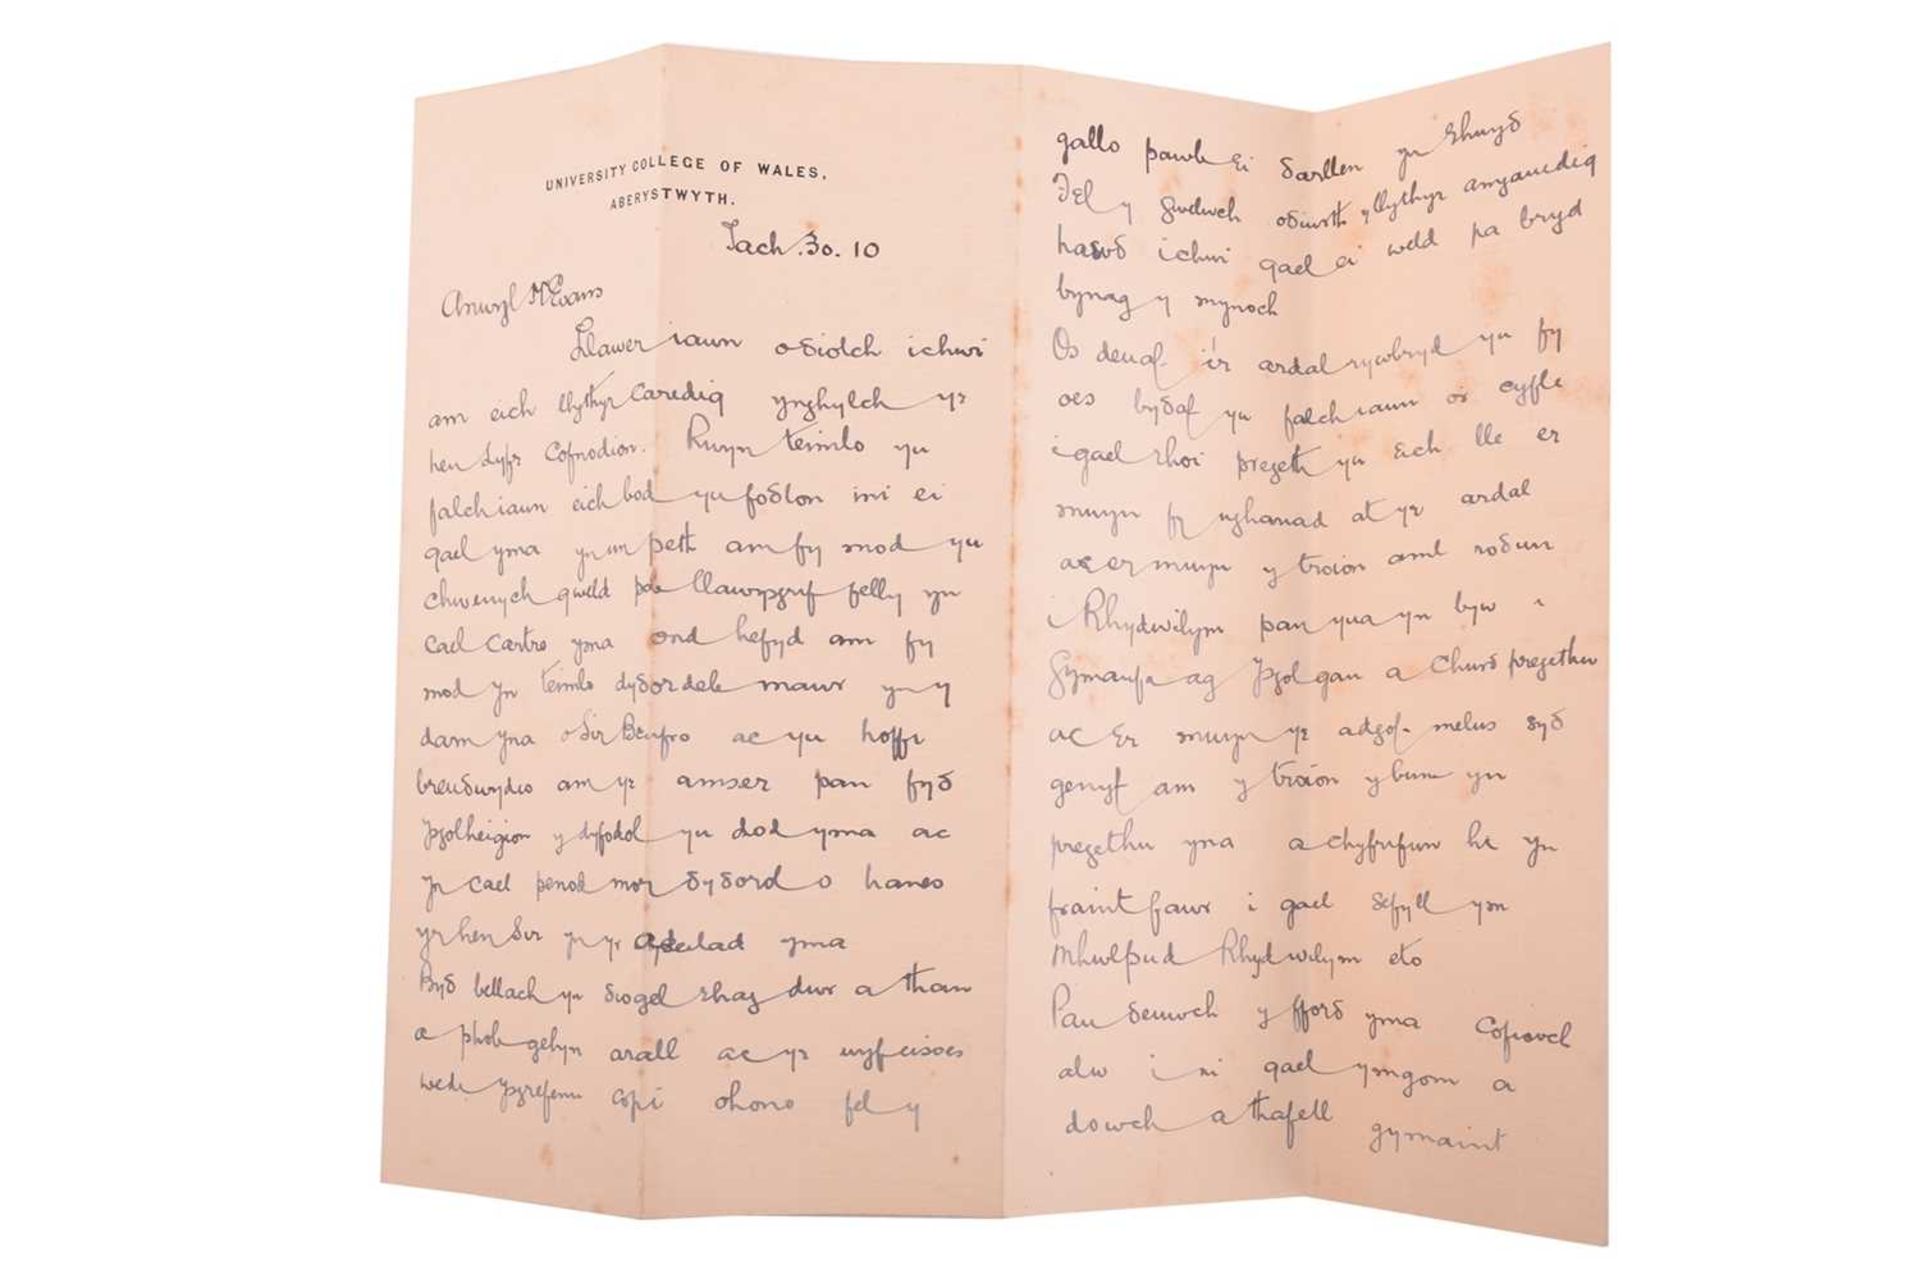 UNIVERSITY COLLEGE OF WALES,
ABERYSTWYTH.
Tach. 30. 10
Anwyl Mr Evans
Llawer iawn o δiolch ichwi
am eich llythyr caredig ynghylch yr
hen Lyfr Cofnodion. Rwyn teimlo yn
falch iawn eich bod yn foδlon imi ei
gael yma yn un peth am fy mod yn
chwenych gweld pob llawysgrif felly yn
cael cartre yma ond hefyd am fy
mod yn teimlo dyδordeb mawr yn y
darn yna o Sir Benfro ac yn hoffi
breuδwydio am yr amser pan fyδ
ysgolheigion y dyfodol yn dod yma ac
yn cael penod mor δyδorol o hanes
yr hen Sir yn yr adeilad yma
Byδ bellach yn δiogel rhag dwr a than
a phob gelyn arall ac yr wyf eisoes
wedi ysgrifenu copi ohono fel y
gallo pawb ei δarllen yn rhwyδ
Fel y gwelwch oδiwrth y llythyr amgauedig
hawδ ichwi gael ei weld pa bryd
bynag y mynoch
Os deuaf i'r ardal rywbryd yn fy
oes byδaf yn falch iawn o'r cyfle
i gael rhoi pregeth yn eich lle er
mwyn fy nghariad at yr ardal
ac er mwyn y troion aml
i Rhydwilym pan yn byw
Gymanfa ag Ysgol gan a Chwrδ pregethu
ac er mwyn yr adgof melus syδ
genyf am y troion y bum yn
pregethu yna a chyfrifwn hi yn
fraint fawr i gael sefyll ym
Mhwlpud Rhydwilym eto
Pan δeuwch y fforδ yma cofiwch
alw i ni gael ymgom a
dowch a thafell gymaint